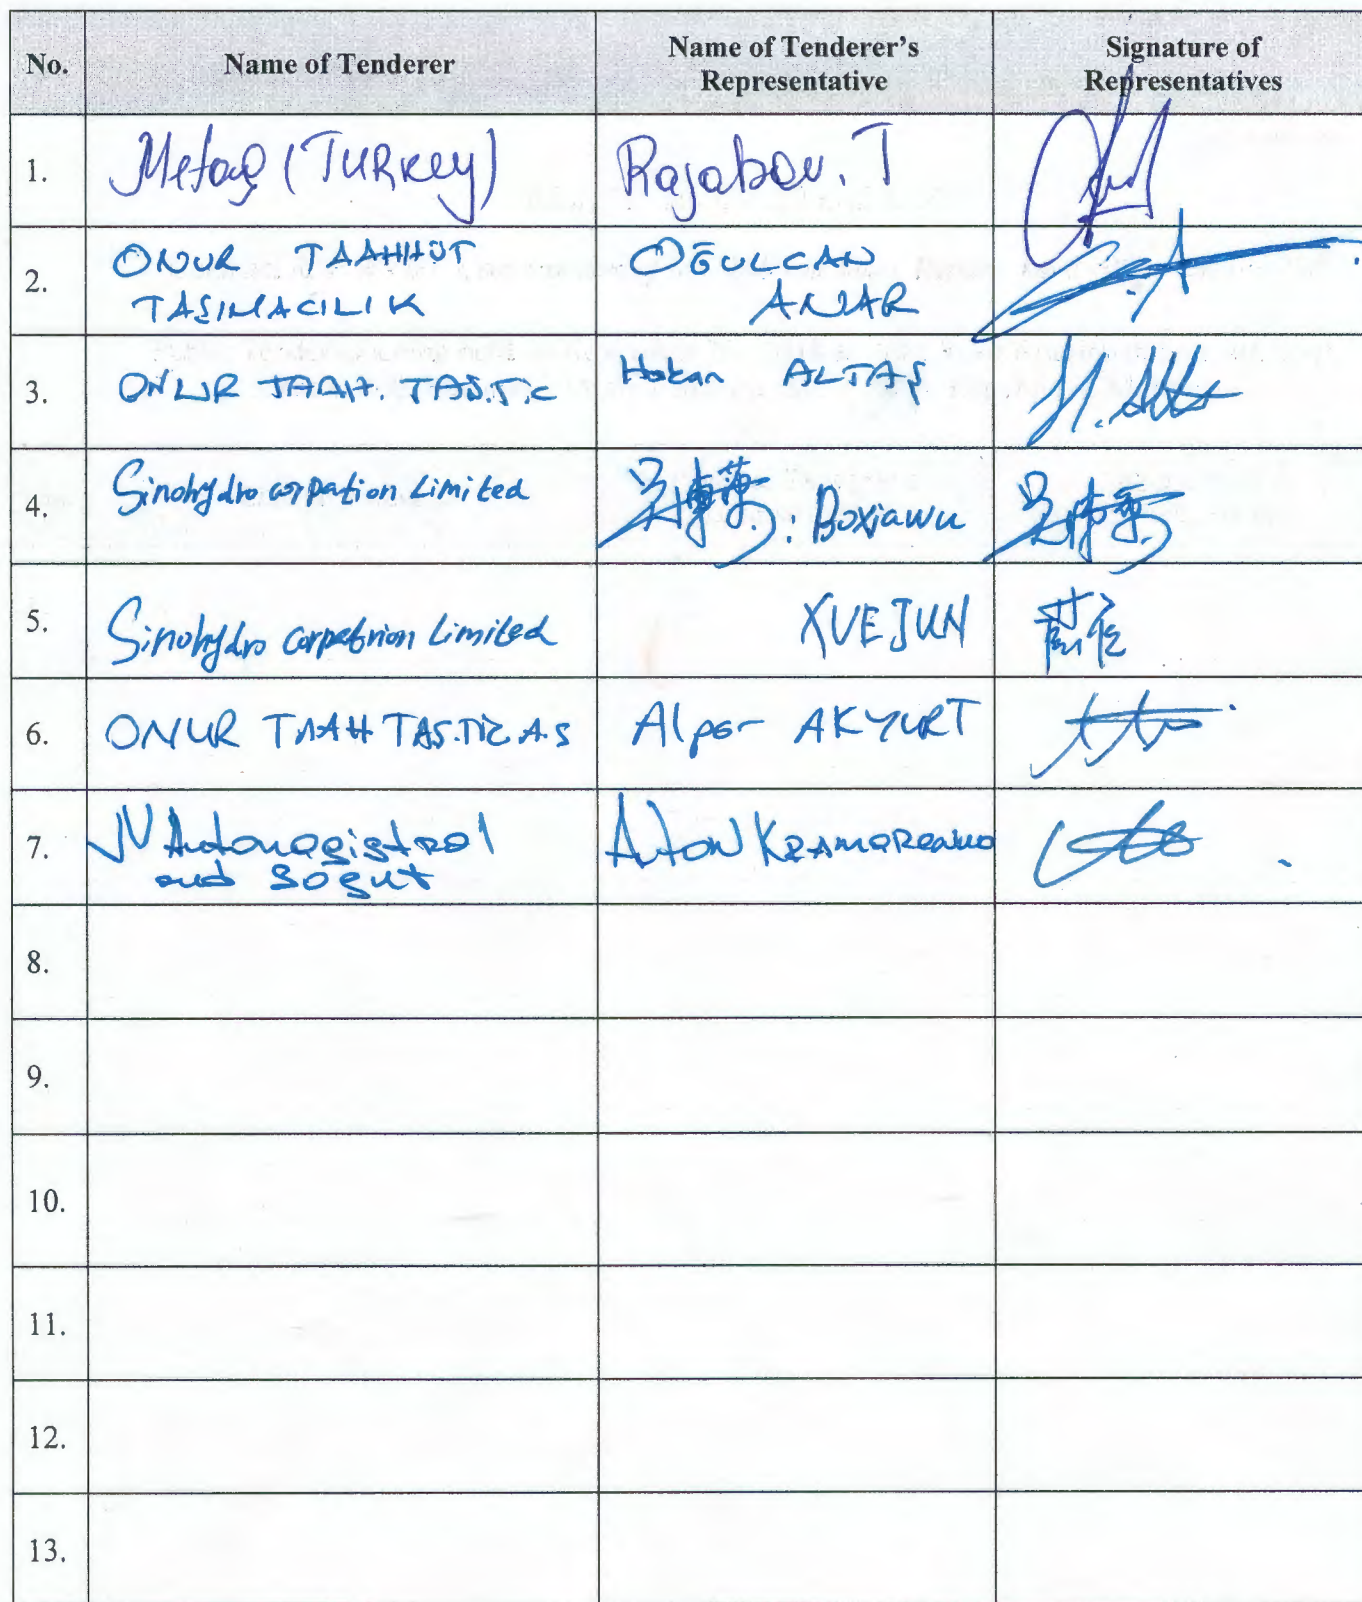 No. Name of Tenderer Name of Tenderer's Representative Signature of Representatives
1. Metag (TURKey) Rajabov. T
2. ONUR TAAHHÜT OĞULCAN
TAŞIMACILIK ANAR
3. ONUR TAAH. TAŞ.TİC Hakan ALTAŞ H. Alta
4. Sinohydro corpation Limited 吴博萬 : Boxiawu
5. Sinohydro Limited XUEJUN
6. ONUR TAAH TAS.TİC A.S Alper AKYURT
7. JV Automagistral Anton
and SOGUT
8.
9.
10.
11.
12.
13.